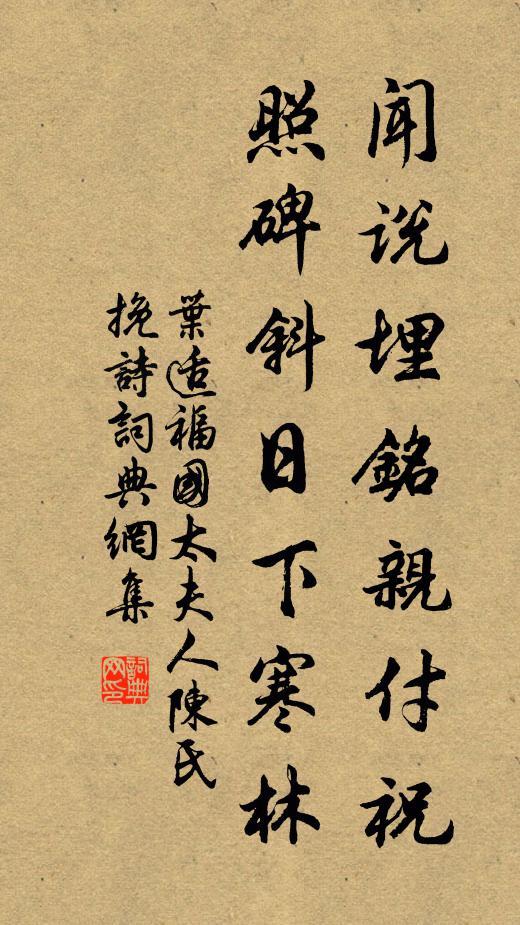 聞說埋銘親付祝
照碑斜日下寒林
葉适福國太夫人陳氏
挽詩詞典網集
詞典网印